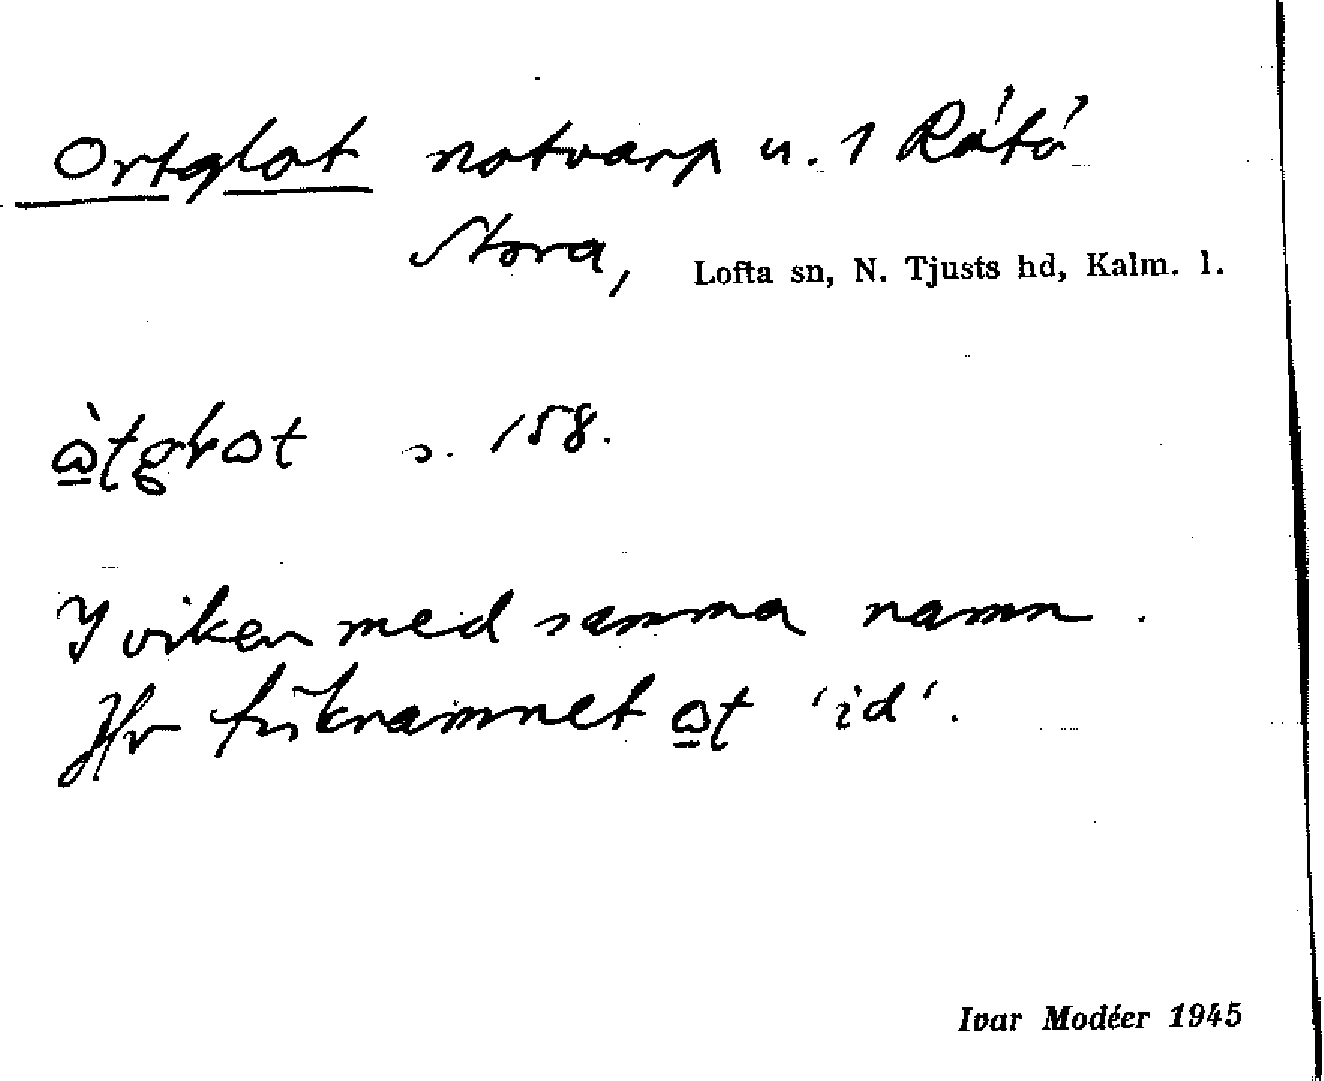 Ortglot notvarp u. 1 Rátó
Stora, Lofta sn, N. Tjusts hd, Kalm. l.
s. 158.
I viken med samma namn.
Jfr fisknamnet 'id'.
Ivar Modéer 1945